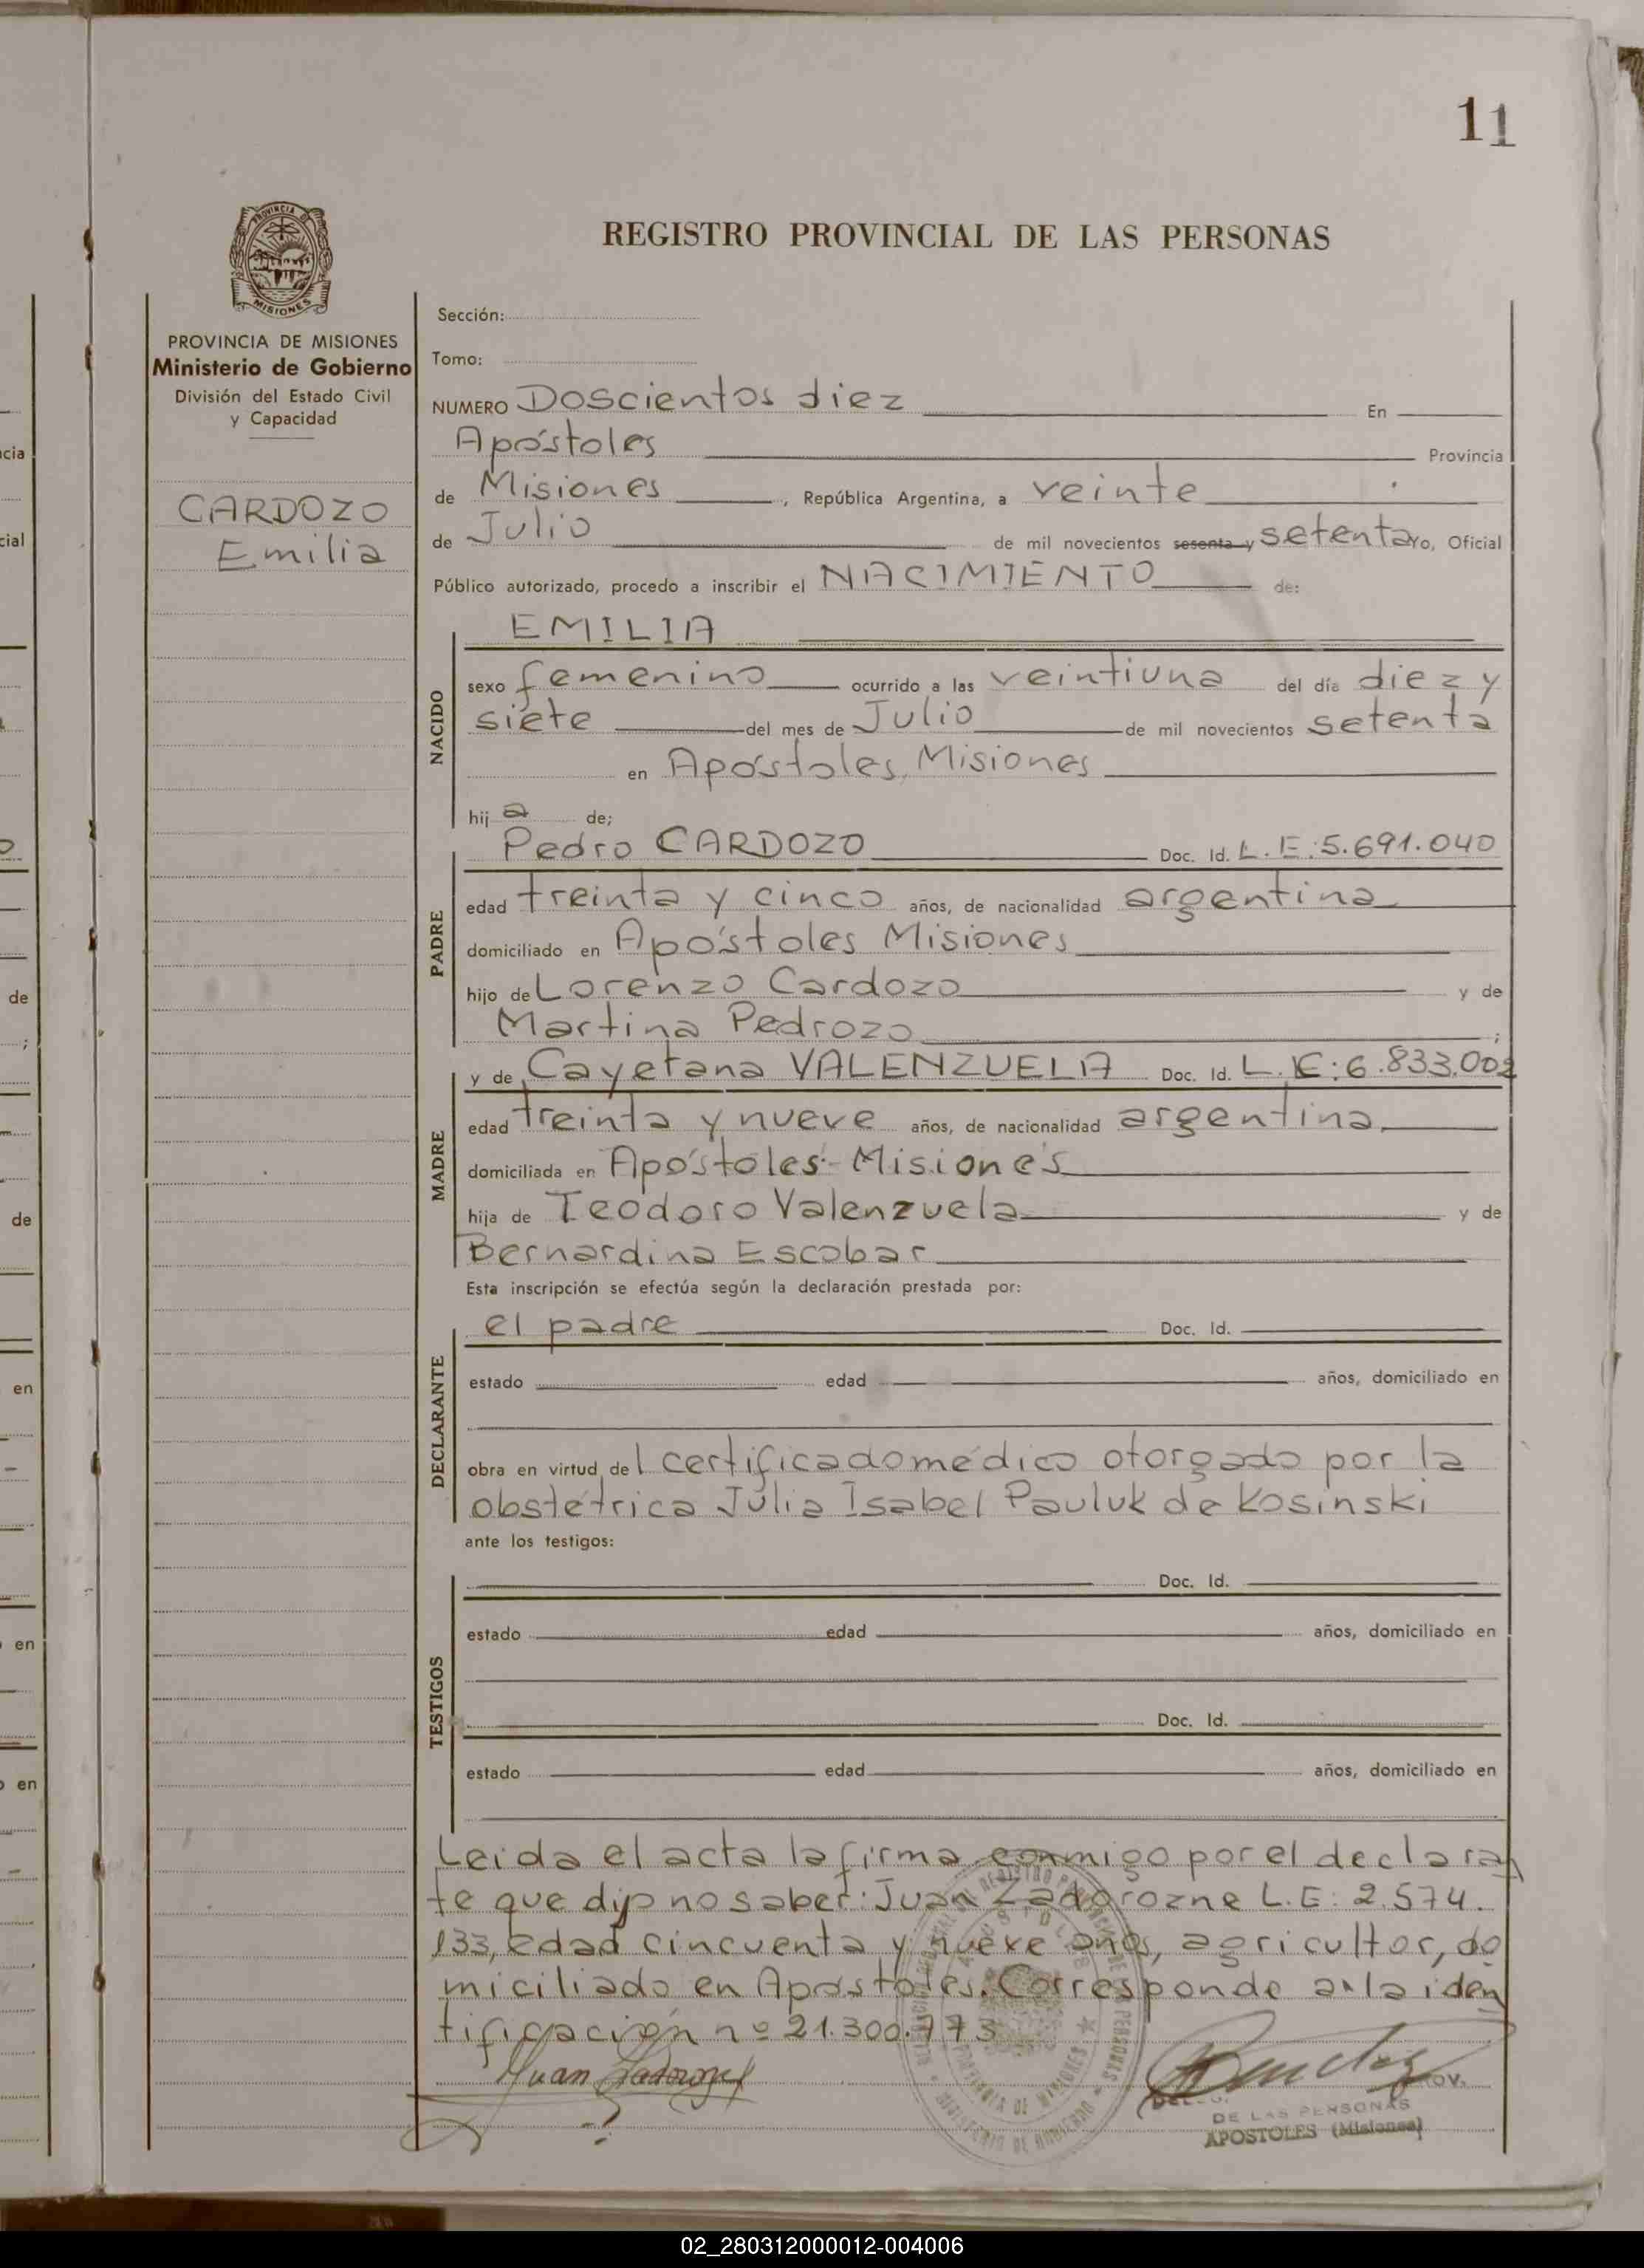 11
REGISTRO PROVINCIAL DE LAS PERSONAS
PROVINCIA DE
MISIONES
PROVINCIA DE MISIONES
Ministerio de Gobierno
División del Estado Civil
y Capacidad
CARDOZO
Emilia
Sección:
Tomo:
NUMERO Doscientos diez En
Apóstoles Provincia
de Misiones, República Argentina, a veinte
de Julio de mil novecientos sesenta y setenta yo, Oficial
Público autorizado, procedo a inscribir el NACIMIENTO de:
NACIDO
EMILIA
sexo femenino ocurrido a las veintiuna del día diez y
siete del mes de Julio de mil novecientos setenta
en Apóstoles, Misiones
hij a de;
PADRE
Pedro CARDOZO Doc. Id. L.E:5.691.040
edad treinta y cinco años, de nacionalidad argentina
domiciliado en Apóstoles Misiones
hijo de Lorenzo Cardozo y de
Martina Pedrozo ;
MADRE
y de Cayetana VALENZUELA Doc. Id. L. : 6.833.002
edad treinta y nueve años, de nacionalidad argentina
domiciliada en Apóstoles-Misiones
hija de Teodoro Valenzuela y de
Bernardina Escobar
Esta inscripción se efectúa según la declaración prestada por:
DECLARANTE
el padre Doc. Id.
estado edad años, domiciliado en
obra en virtud de l certificado médico otorgado por la
obstétrica Julia Isabel Pauluk de Kosinski
ante los testigos:
TESTIGOS
Doc. Id.
estado edad años, domiciliado en
Doc. Id.
estado edad años, domiciliado en
Leida el acta la firma conmigo por el declaran
te que dijo no saber: Juan Zadorozne L.E: 2.574.
133, edad cincuenta y nueve años, agricultor, do
miciliado en Apóstoles. Corresponde a la iden
tificación nº 21.300.773
Juan
DE LAS PERSONAS
APOSTOLES (Misiones)
02_280312000012-004006